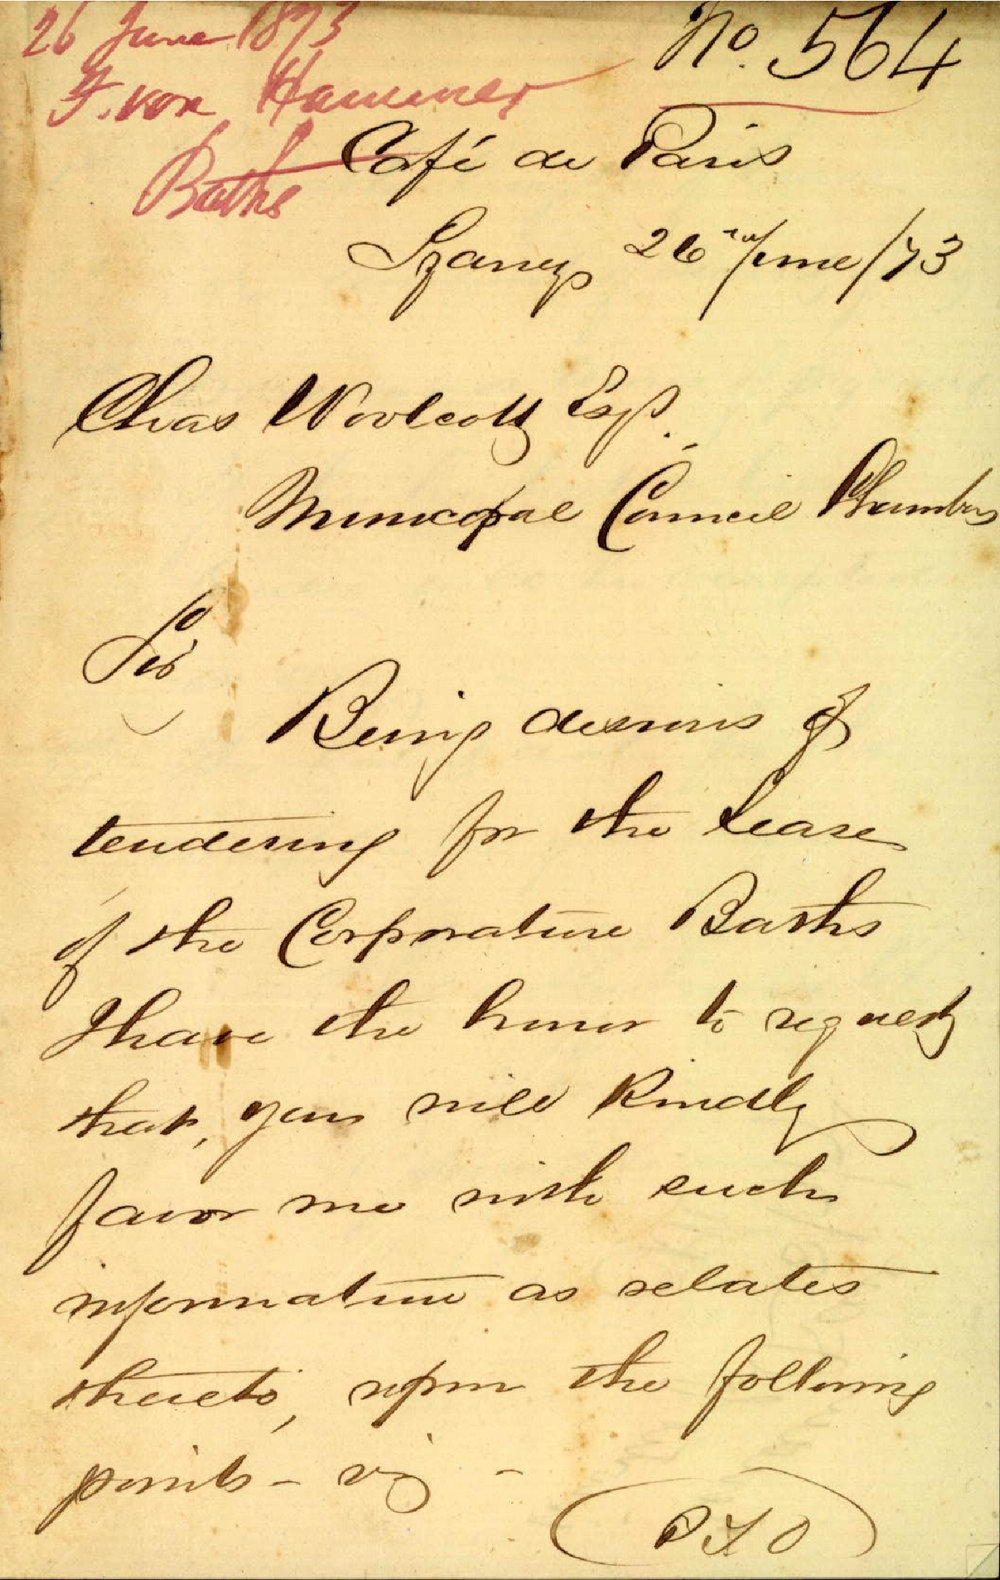 26 June 1873
No. 564
F. von Hammer
Baths
Café de Paris
Sydney 26th June/73
Chas Woolcott Esqr.
Municipal Council Chambers
Sir
Being desirous of
tendering for the Lease
of the Corporation Baths
I have the honor to request
that, you will kindly
favor me with such
information as relates
thereto, upon the following
points - viz -
P T O